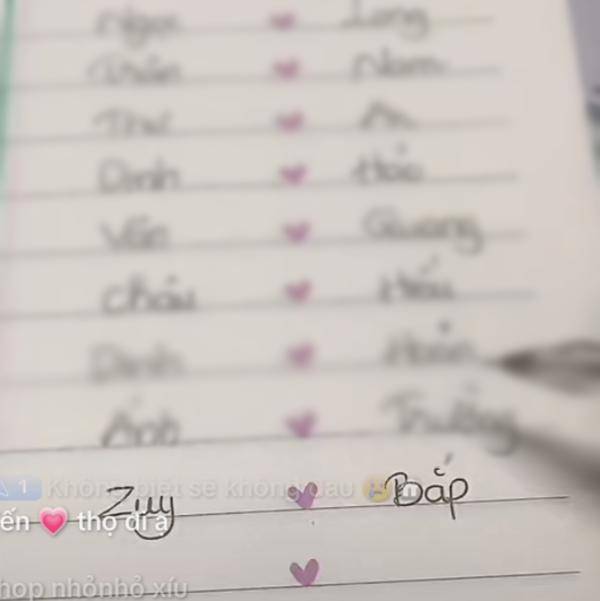 Ngọc Long
Nam
Thư Ân
Dinh Hảo
Vân Quang
Châu Hiếu
Danh
Ánh Trường
1 Không biết sẽ không đau
Zuy Bắp
ến thọ đi ạ
họp nhỏnhỏ xíu